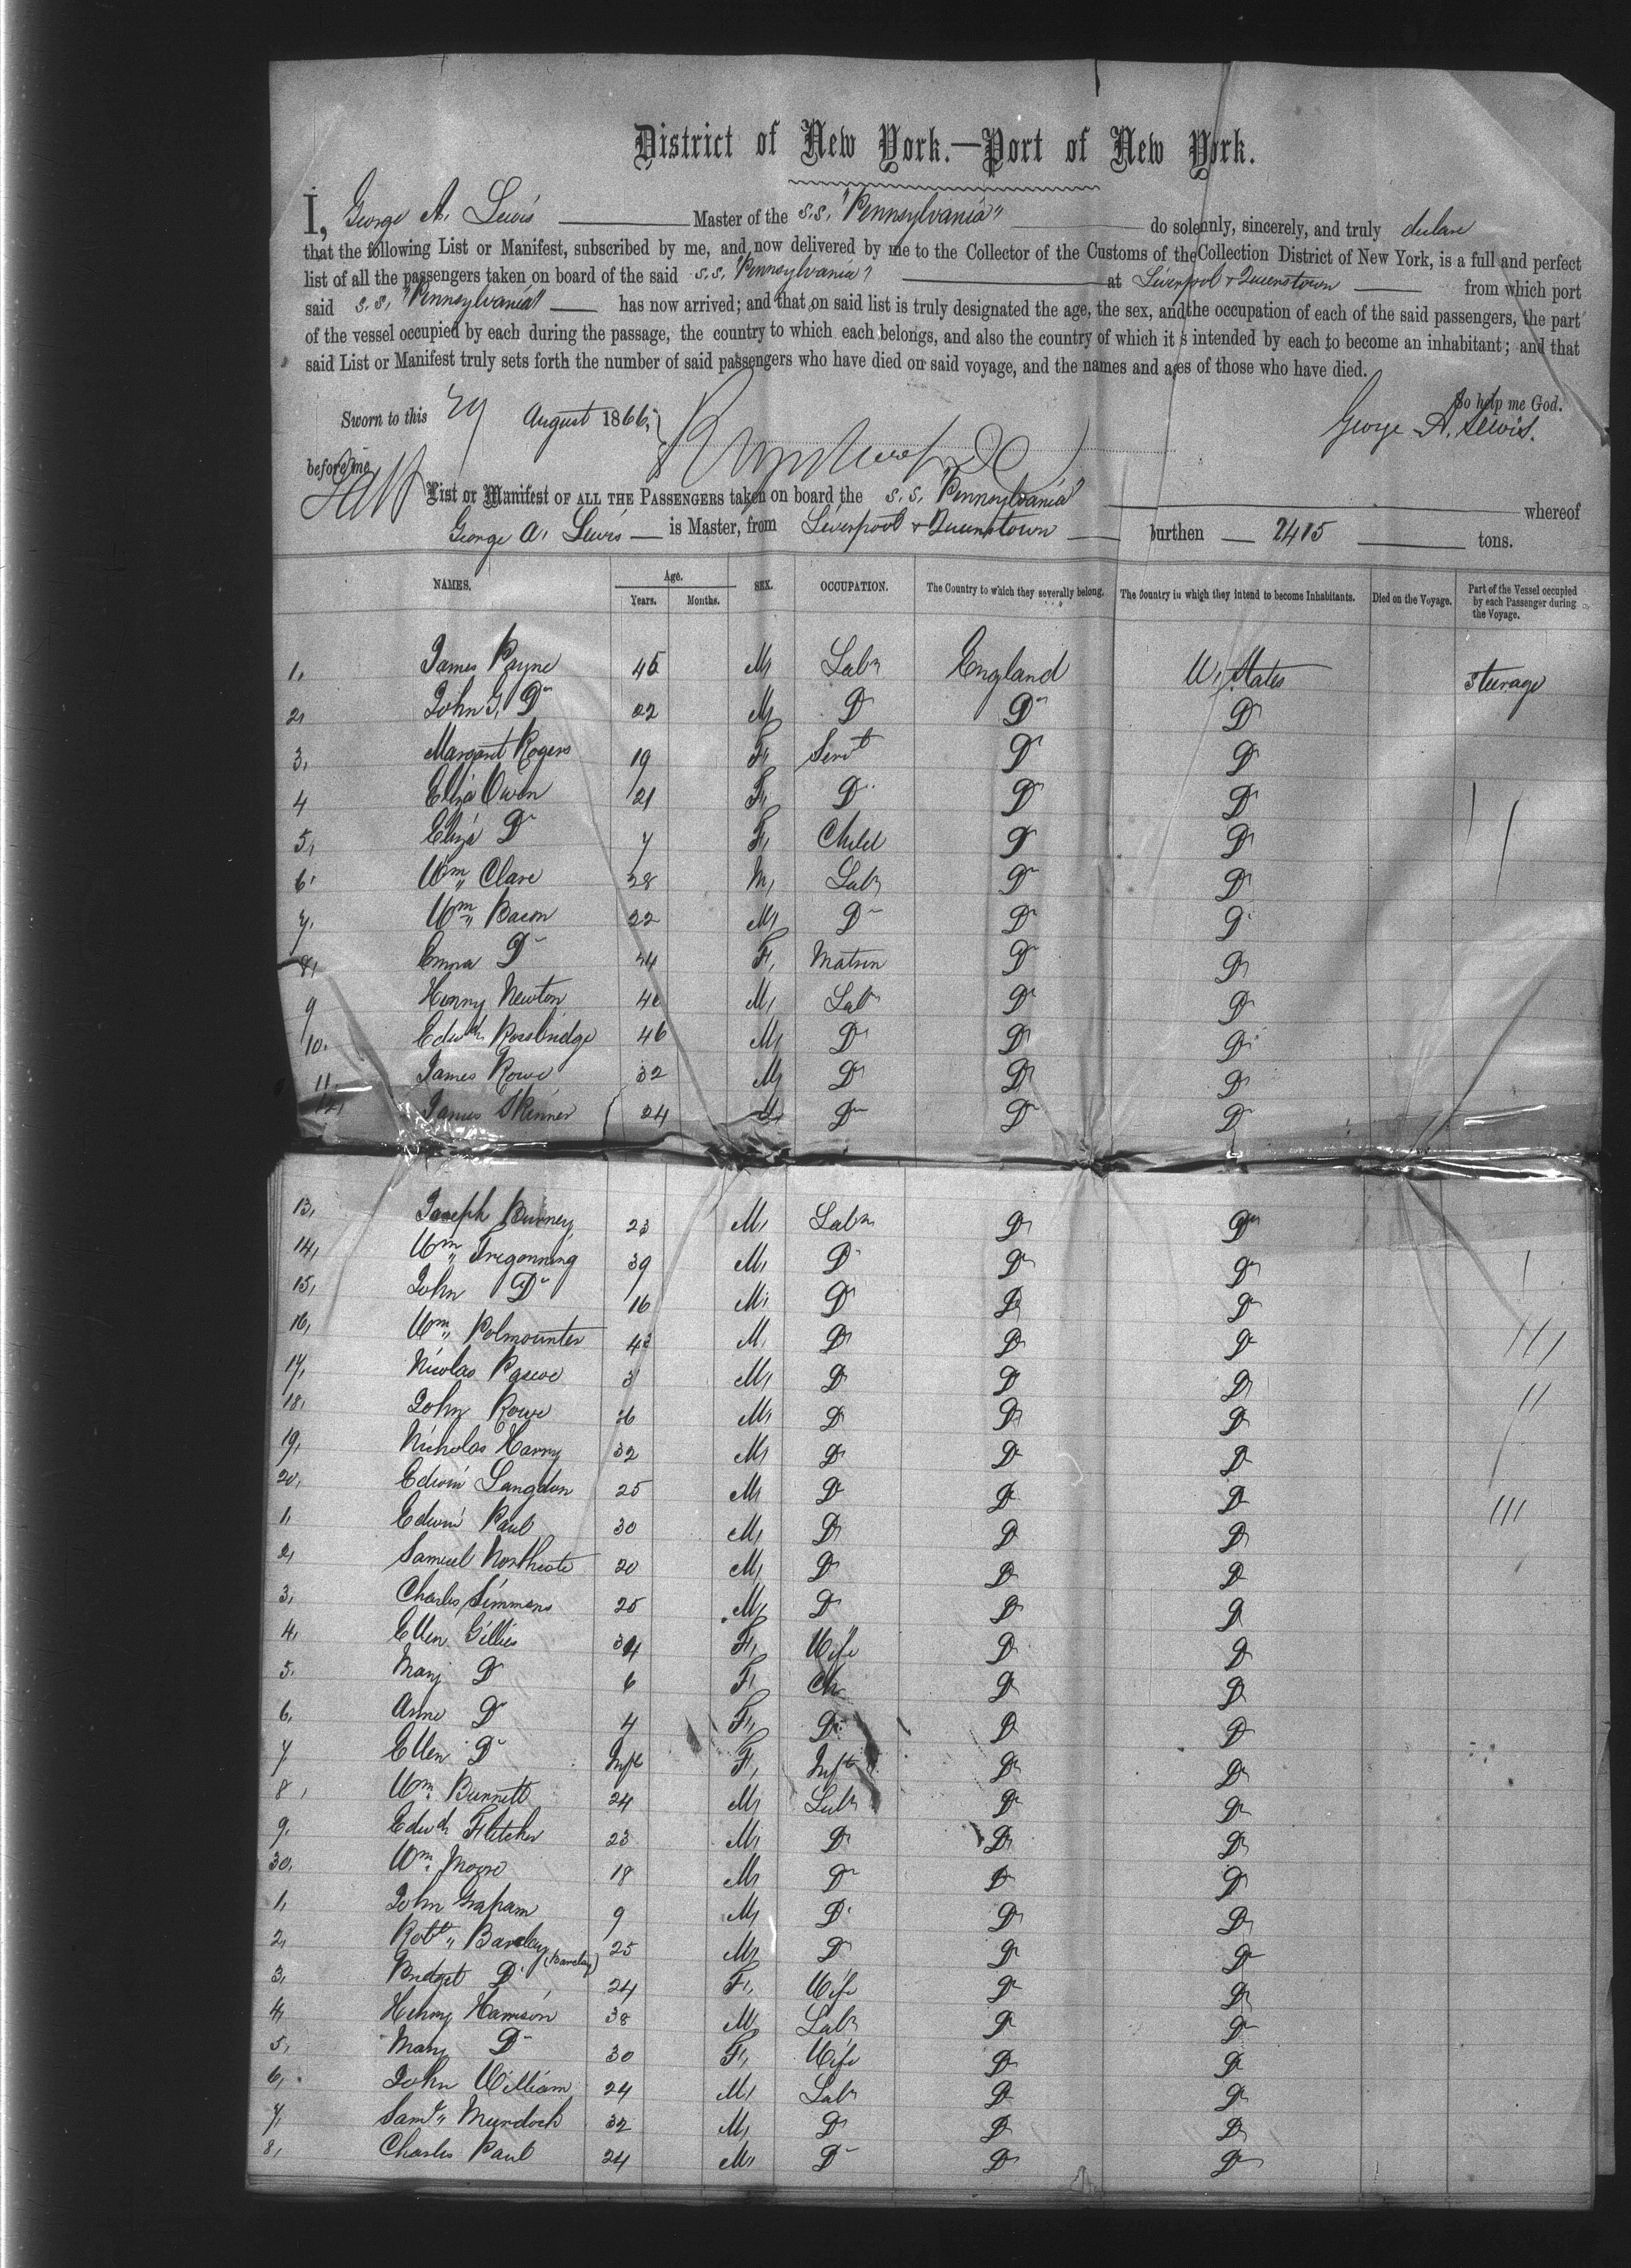 District of New York.—Port of New York.
I, George A. Lewis Master of the S.S. "Pennsylvania" do solemnly, sincerely, and truly declare
that the following List or Manifest, subscribed by me, and now delivered by me to the Collector of the Customs of the Collection District of New York, is a full and perfect
list of all the passengers taken on board of the said S.S. "Pennsylvania" at Liverpool & Queenstown from which port
said S.S. "Pennsylvania" has now arrived; and that on said list is truly designated the age, the sex, and the occupation of each of the said passengers, the part
of the vessel occupied by each during the passage, the country to which each belongs, and also the country of which it s intended by each to become an inhabitant; and that
said List or Manifest truly sets forth the number of said passengers who have died on said voyage, and the names and ages of those who have died.
So help me God.
Sworn to this 29 August 1866, George A. Lewis.
before me
List or Manifest OF ALL THE PASSENGERS taken on board the S.S. "Pennsylvania" whereof
George A. Lewis is Master, from Liverpool & Queenstown burthen 2415 tons.
NAMES. Age. Years. Months. SEX. OCCUPATION. The Country to which they severally belong. The Country in which they intend to become Inhabitants. Died on the Voyage. Part of the Vessel occupied by each Passenger during the Voyage.
1, James Payne 45 M Labr England U. States Steerage
2, John G. Do 22 M Do Do Do
3, Margaret Rogers 19 F, Servt Do Do
4 Eliza Owen 21 F, Do Do Do
5, Eliza Do 7 F, Child Do Do
6, Wm Clare 28 M, Labr Do Do
7, Wm Bacon 22 M, Do Do Do
8, Emma Do 24 F, Matron Do Do
9 Henry Newton 40 M, Labr Do Do
10. Edwd Rossbridge 46 M, Do Do Do
11, James Rowe 32 M Do Do Do
12, James Skinner 24 M Do Do Do
13, Joseph Burney 23 M, Labr Do Do
14, Wm Tregonning 39 M, Do Do Do
15, John Do 16 M, Do Do Do
16, Wm Polmounter 43 M. Do Do Do
17, Nicolas Pascoe M, Do Do Do
18, John Rowe M, Do Do Do
19, Nicholas Harry 32 M, Do Do Do
20, Edwin Langdon 25 M Do Do Do
1, Edwin Paul 30 M, Do Do Do
2, Samuel Northcote 20 M, Do Do Do
3, Charles Simmons 25 M, Do Do Do
4, Ellen Gillies 34 F, Wife Do Do
5. Mary Do 6 F, Ch Do Do
6, Anne Do 4 F, Do Do Do
7 Ellen Do Inft F, Inft Do Do
8, Wm Burnett 24 M, Labr Do Do
9. Edwd Fletcher 23 M, Do Do Do
30, Wm Moore 18 M, Do Do Do
1, John Graham 9 M, Do Do Do
2, Robt Barclay (Barclay) 25 M, Do Do Do
3, Bridget Do 24 F, Wife Do Do
4, Henry Harrison 38 M, Labr Do Do
5, Mary Do 30 F, Wife Do Do
6, John William 24 M, Labr Do Do
7, Saml Murdoch 32 M, Do Do Do
8, Charles Paul 24 M, Do Do Do